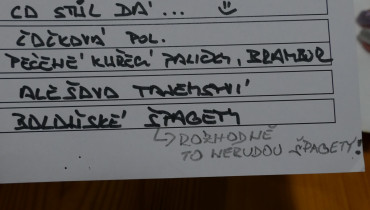 CO STŮL DÁ... ☺
ČOČKOVÁ POL.
PEČENÉ KUŘECÍ PALIČKY, BRAMBOR
ALEŠOVO TAJEMSTVÍ
BOLOŇSKÉ ŠPAGETY
↳ ROZHODNĚ
TO NEBUDOU ŠPAGETY!